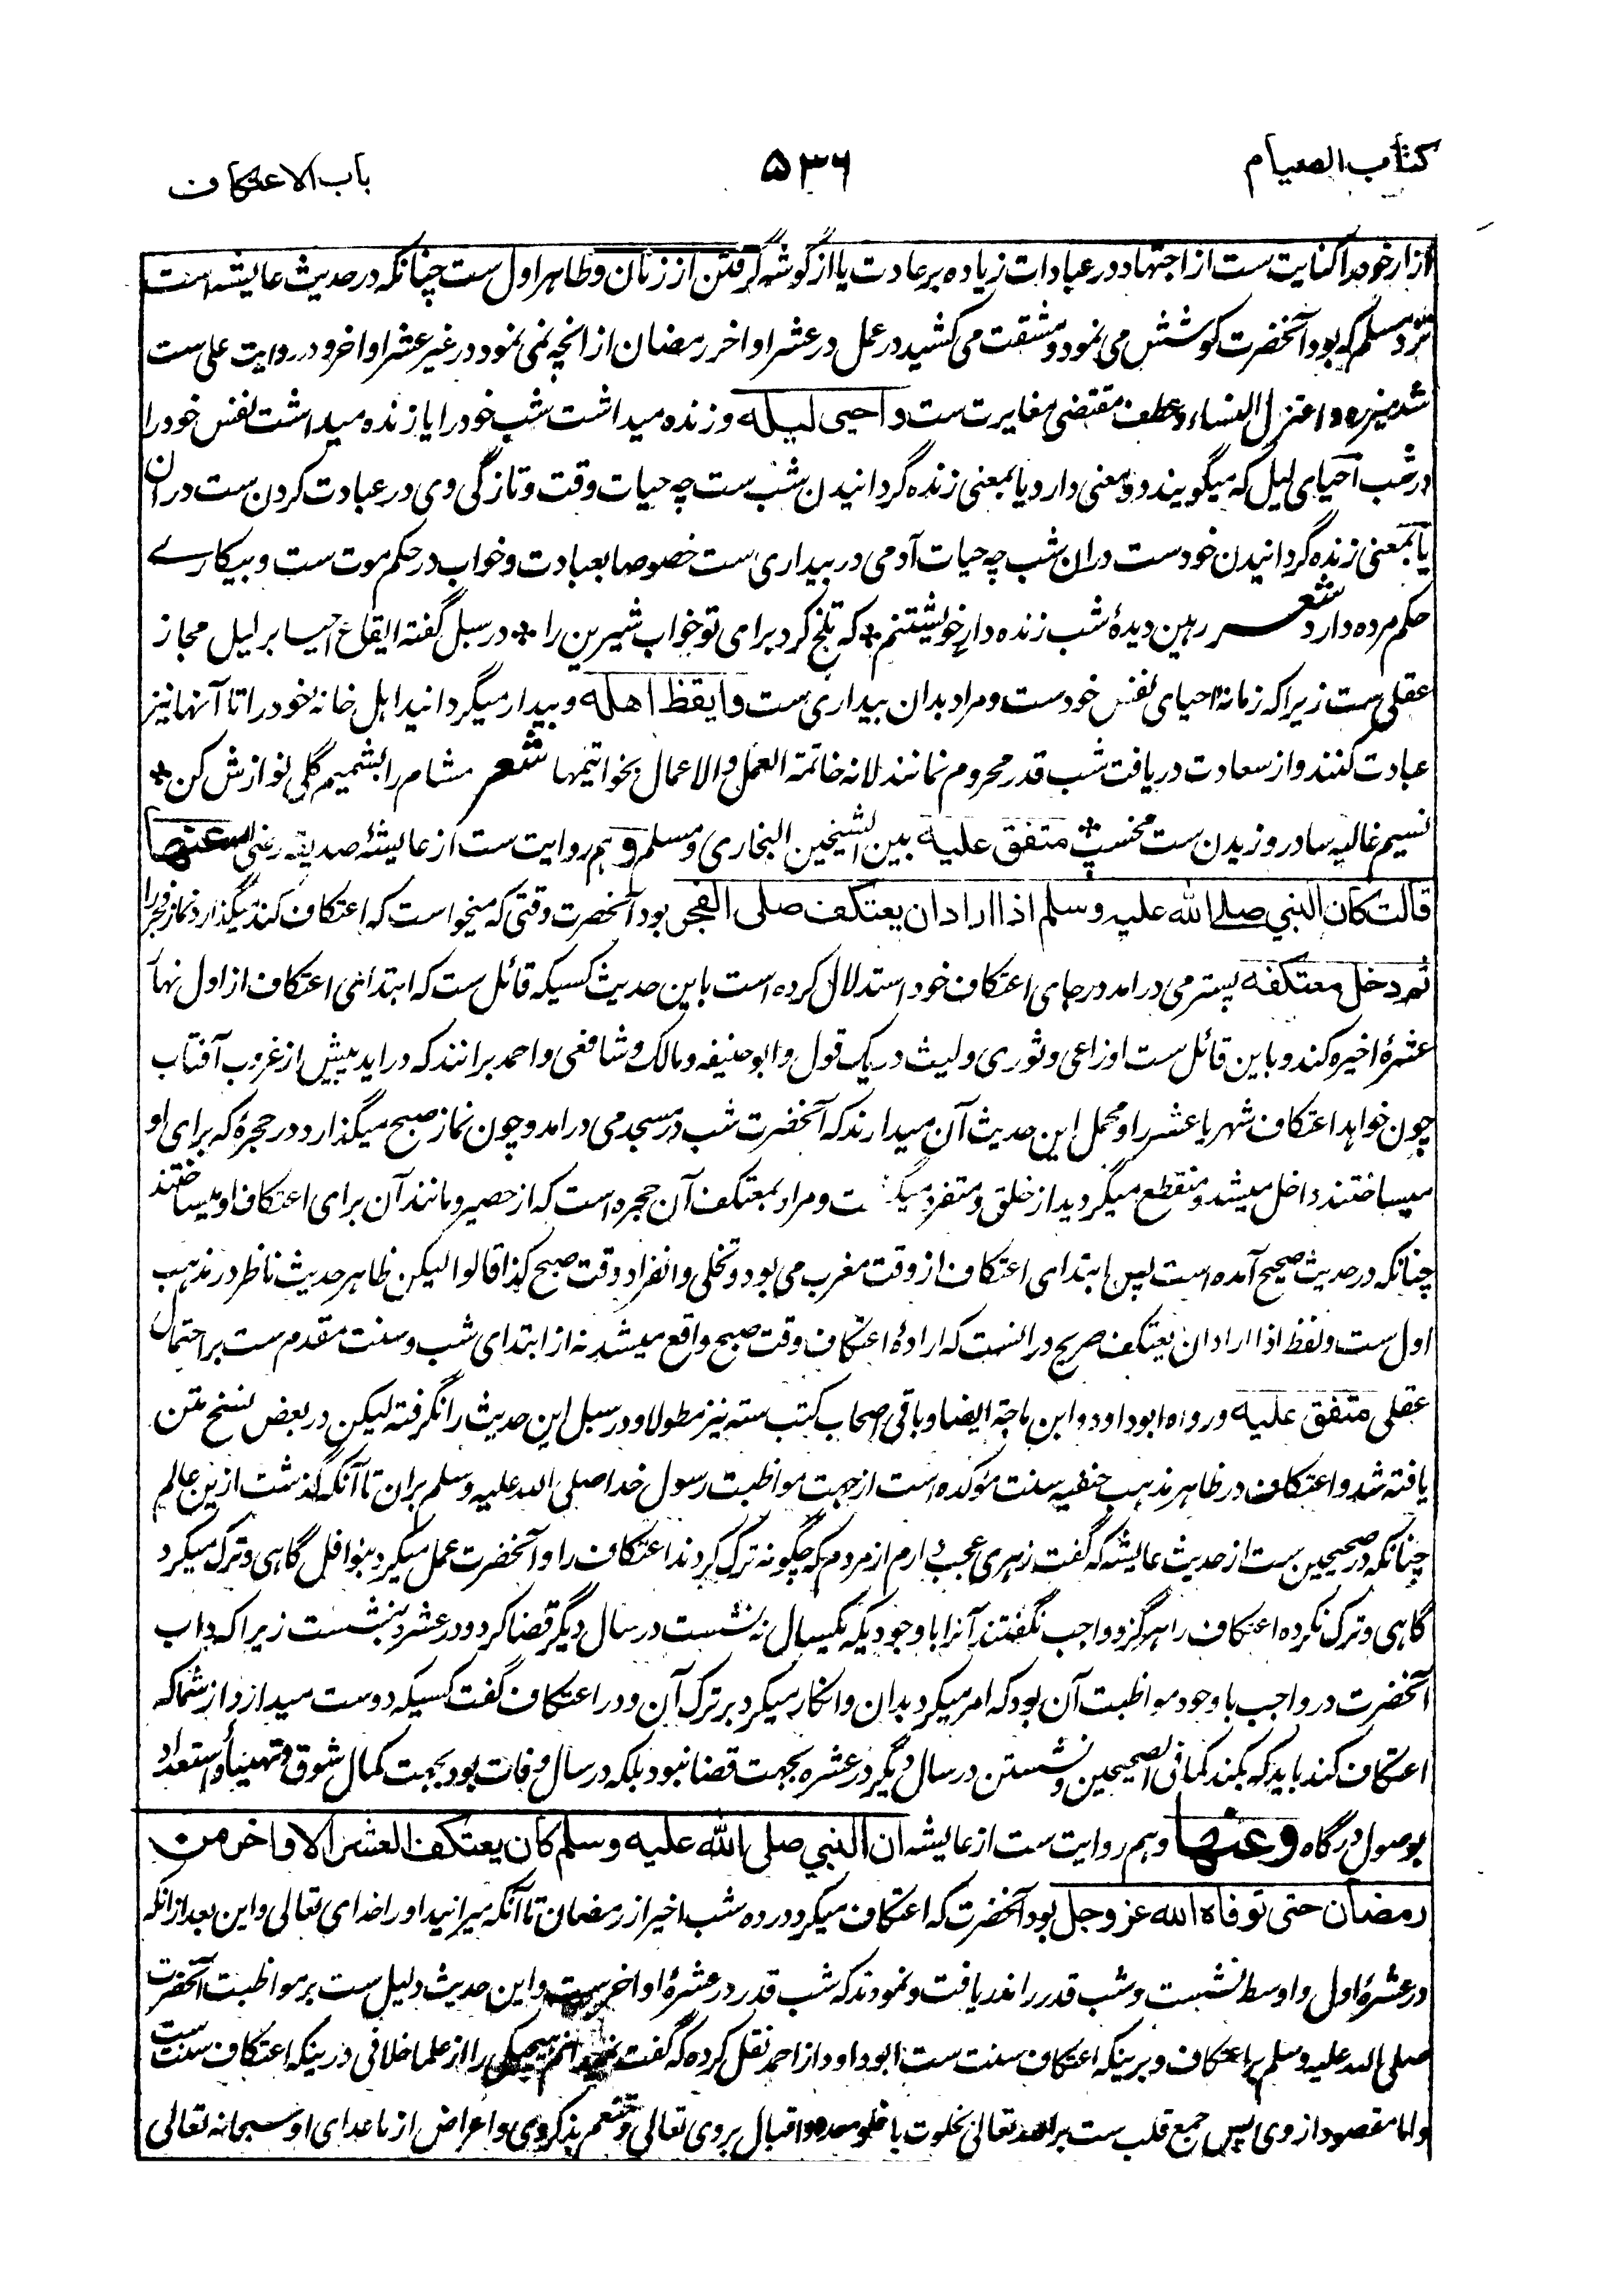 کتاب الصیام
۵۳۶
باب الاعتکاف
ازار خود را کنایت ست از اجتهاد در عبادات زیاده بر عادت یا از گوشه گرفتن از زنان و ظاهر اول ست چنانکه در حدیث عایشه است
نزد مسلم که بود آنحضرت کوشش می نمود و مشقت می کشید در عمل در عشر اواخر رمضان از انچه نمی نمود در غیر عشر اواخر و در روایت علی ست
شد میزره و اعتزل النساء و عطف مقتضی مغایرت ست و احیی لیله و زنده میداشت شب خود را یا زنده میداشت نفس خود را
در شب احیای لیل که میگویند دو معنی دارد یا بمعنی زنده گردانیدن شب ست چه حیات وقت و تازگی وی در عبادت کردن ست در ان
یا بمعنی زنده گردانیدن خودست دران شب چه حیات آدمی در بیداری ست خصوصا بعبادت و خواب در حکم موت ست و بیکارے
حکم مرده دارد شعر رهین دیدهٔ شب زنده دار خویشتنم * که تلخ کرد برای تو خواب شیرین را * در سبل گفته ایقاع احیا بر لیل مجاز
عقلی ست زیرا که زمانهٔ احیای نفس خودست و مراد بدان بیداری ست و ایقظ اهله و بیدار میگردانید اهل خانهٔ خود را تا آنها نیز
عبادت کنند و از سعادت دریافت شب قدر محروم نمانند لانه خاتمة العمل و الاعمال بخواتیمها شعر مشام را بشمیم گلی نوازش کن *
نسیم غالیه سا در وزیدن ست مخسپ * متفق علیه بین الشیخین البخاری و مسلم و هم روایت ست از عایشهٔ صدیقه رضی الله عنها
قالت کان النبی صلی الله علیه وسلم اذا اراد ان یعتکف صلی الفجر بود آنحضرت وقتی که میخواست که اعتکاف کند میگذارد نماز فجر را
ثم دخل معتکفه پستر می درامد در جای اعتکاف خود استدلال کرده است باین حدیث کسیکه قائل ست که ابتدای اعتکاف از اول نهار
عشرهٔ اخیره کند و باین قائل ست اوزاعی و ثوری و لیث در یک قول و ابوحنیفه و مالک و شافعی و احمد برانند که دراید پیش از غروب آفتاب
چون خواهد اعتکاف شهر یا عشر را و محمل این حدیث آن میدارند که آنحضرت شب در مسجد می درامد و چون نماز صبح میگذارد در حجره که برای او
میساختند داخل میشد و منقطع میگردید از خلق و متفرد و مراد بمعتکف آن حجره است که از حصیر و مانند آن برای اعتکاف او میساختند
چنانکه در حدیث صحیح آمده است پس ابتدای اعتکاف از وقت مغرب می بود و تخلی و انفراد وقت صبح کذا قالوا لیکن ظاهر حدیث ناظر در مذهب
اول ست و لفظ اذا اراد ان یعتکف صریح در انست که ارادهٔ اعتکاف وقت صبح واقع میشد نه از ابتدای شب و سنت مقدم ست بر احتمال
عقلی متفق علیه و رواه ابوداود و ابن ماجة ایضا و باقی اصحاب کتب سته نیز مطولا و در سبل این حدیث را نگرفته لیکن در بعض نسخ متن
یافته شد و اعتکاف در ظاهر مذهب حنفیه سنت مؤکده است از جهت مواظبت رسول خدا صلی الله علیه وسلم بران تا آنکه گذشت ازین عالم
چنانکه در صحیحین ست از حدیث عایشه که گفت زهری عجب دارم از مردم که چگونه ترک کردند اعتکاف را و آنحضرت عمل میکرد بنوافل گاهی و ترک میکرد
گاهی و ترک نکرده اعتکاف را هرگز و واجب نگفتند آنرا با وجودیکه یکسال نه نشست در سال دیگر قضا کرد و در عشر بنشست زیرا که داب
آنحضرت در واجب با وجود مواظبت آن بود که امر میکرد بدان و انکار میکرد بر ترک آن و در اعتکاف گفت کسیکه دوست میدارد از شما که
اعتکاف کند باید که بکند کما فی الصحیحین و نشستن در سال دیگر در عشره بجهت قضا نبود بلکه در سال وفات بود بجهت کمال شوق و تهیّأ و استعداد
بوصول درگاه وعنها و هم روایت ست از عایشه ان النبی صلی الله علیه وسلم کان یعتکف العشر الاواخر من
رمضان حتی توفاه الله عز وجل بود آنحضرت که اعتکاف میکرد در ده شب اخیر از رمضان تا آنکه میرانید او را خدای تعالی و این بعد ازانکه
در عشرهٔ اول و اوسط نشست و شب قدر را ندریافت و نمودند که شب قدر در عشرهٔ اواخر ست و این حدیث دلیل ست بر مواظبت آنحضرت
صلی الله علیه وسلم بر اعتکاف و برینکه اعتکاف سنت ست ابوداود از احمد نقل کرده که گفت هیچیکی را از علما خلافی درینکه اعتکاف سنت ست
و اما مقصود از وی پس جمع قلب ست بر الله تعالی بخلوت با خلو معده و اقبال بروی تعالی و تنعم بذکر وی و اعراض از ماعدای او سبحانه تعالی